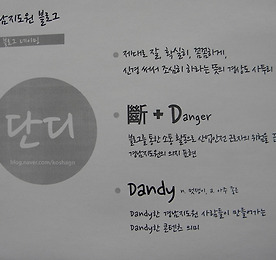 경남지도원 블로그
블로그 네이밍
단디
blog.naver.com/koshagn
제대로 잘, 확실히, 꼼꼼하게,
신경 써서 조심히 하라는 뜻의 경상도 사투리
斷 + Danger
블로그를 통한 소통 활동으로 산업안전 근로자의 위험을
경남지도원의 의지 표현
Dandy n. 멋쟁이, a. 아주 좋은
Dandy한 경남지도원 사람들이 만들어가는
Dandy한 콘텐츠 의미